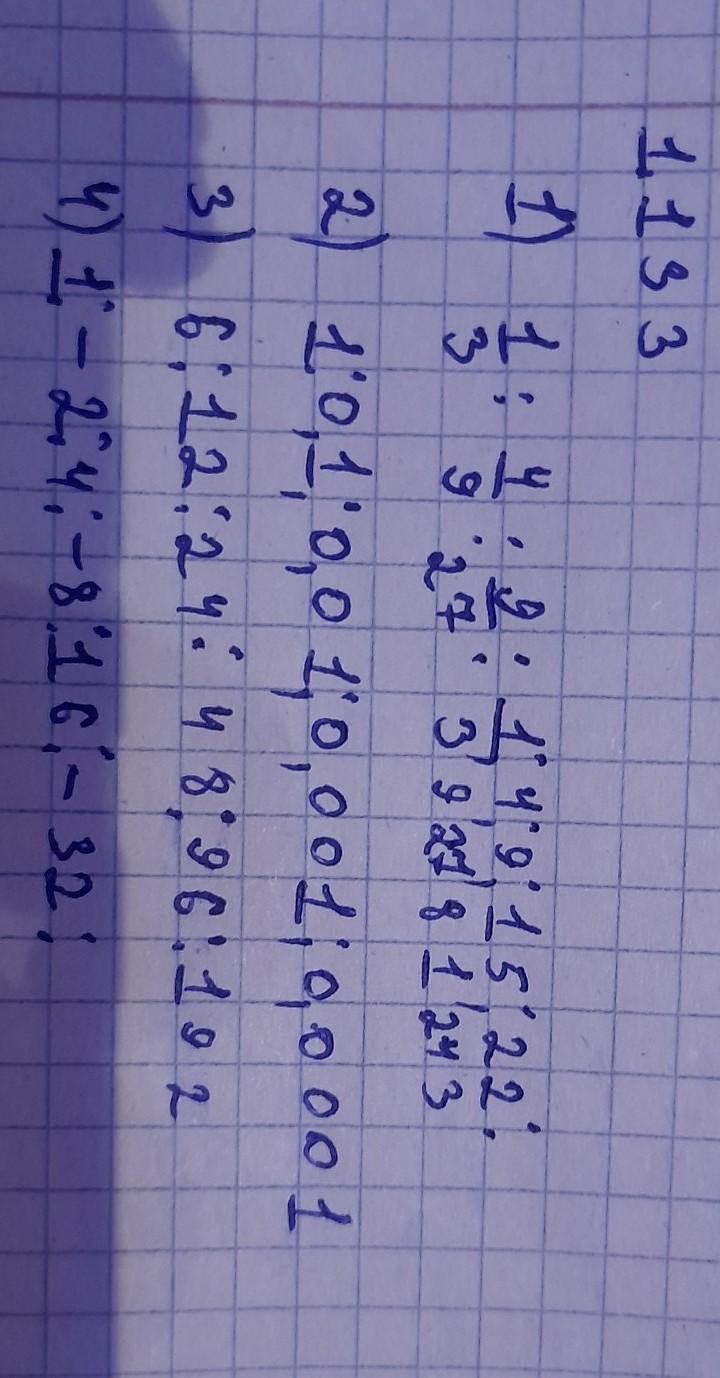 1133
1) 1/3; 4/9; 9/27; 1/3; 4/9; 9/27; 15/81; 22/243;
2) 1; 0,1; 0,01; 0,001; 0,0001
3) 6; 12; 24; 48; 96; 192
4) 1; -2; 4; -8; 16; -32;